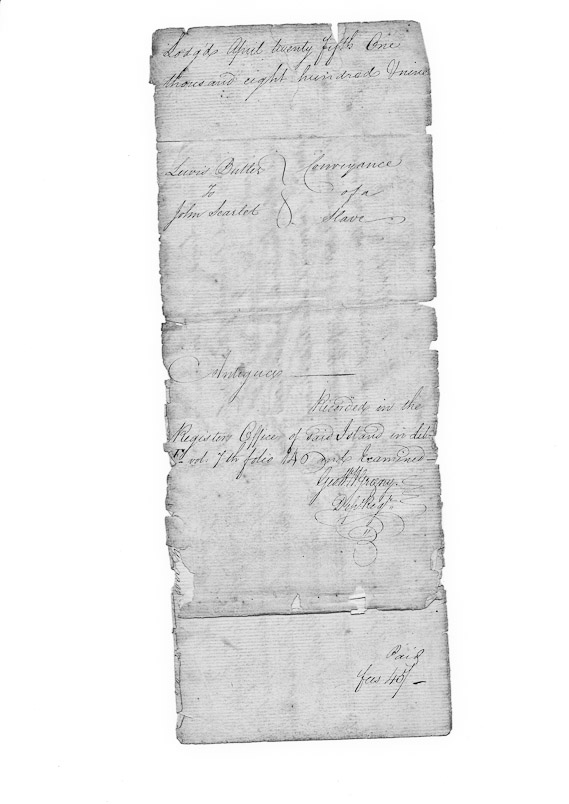 Lodg'd April twenty fifth One
thousand eight hundred & nine
Lewis Butler
to
John Scarlet
Conveyance
of a
Slave
Antigua
Recorded in the
Registers Office of said Island in
vol. 7th folio and Examined
Dy Regr.
Paid
fees